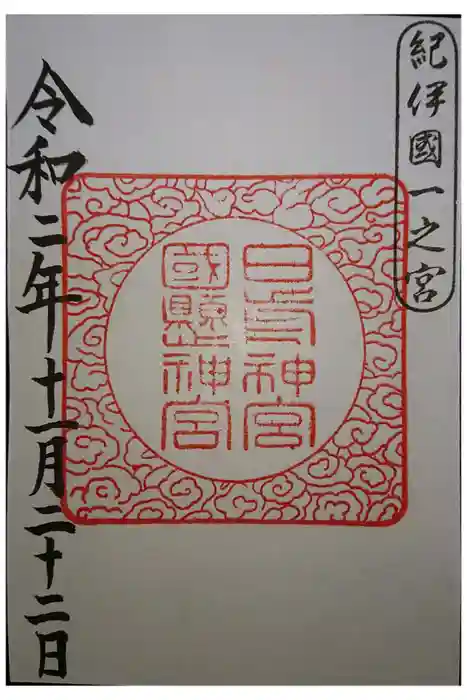 紀伊國一之宮
日前神宮
國懸神宮
令和二年十一月二十二日